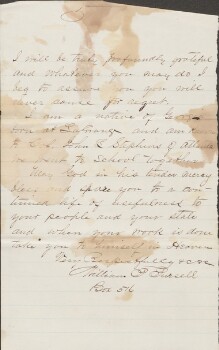 I will be truly profoundly grateful
and whatever you may do I
beg to assure you you will
never cause for regret.
I am a native of Geor-
born at LaGrange and am
to Hon Stephens of Atlanta
we went to School together
May God in his tender mercy
bless and spare you to a con-
tinued life of usefulness to
your people and your State
and when your work is done
take you to himself in Heaven
Respectfully &c &c
William P.
Box 516